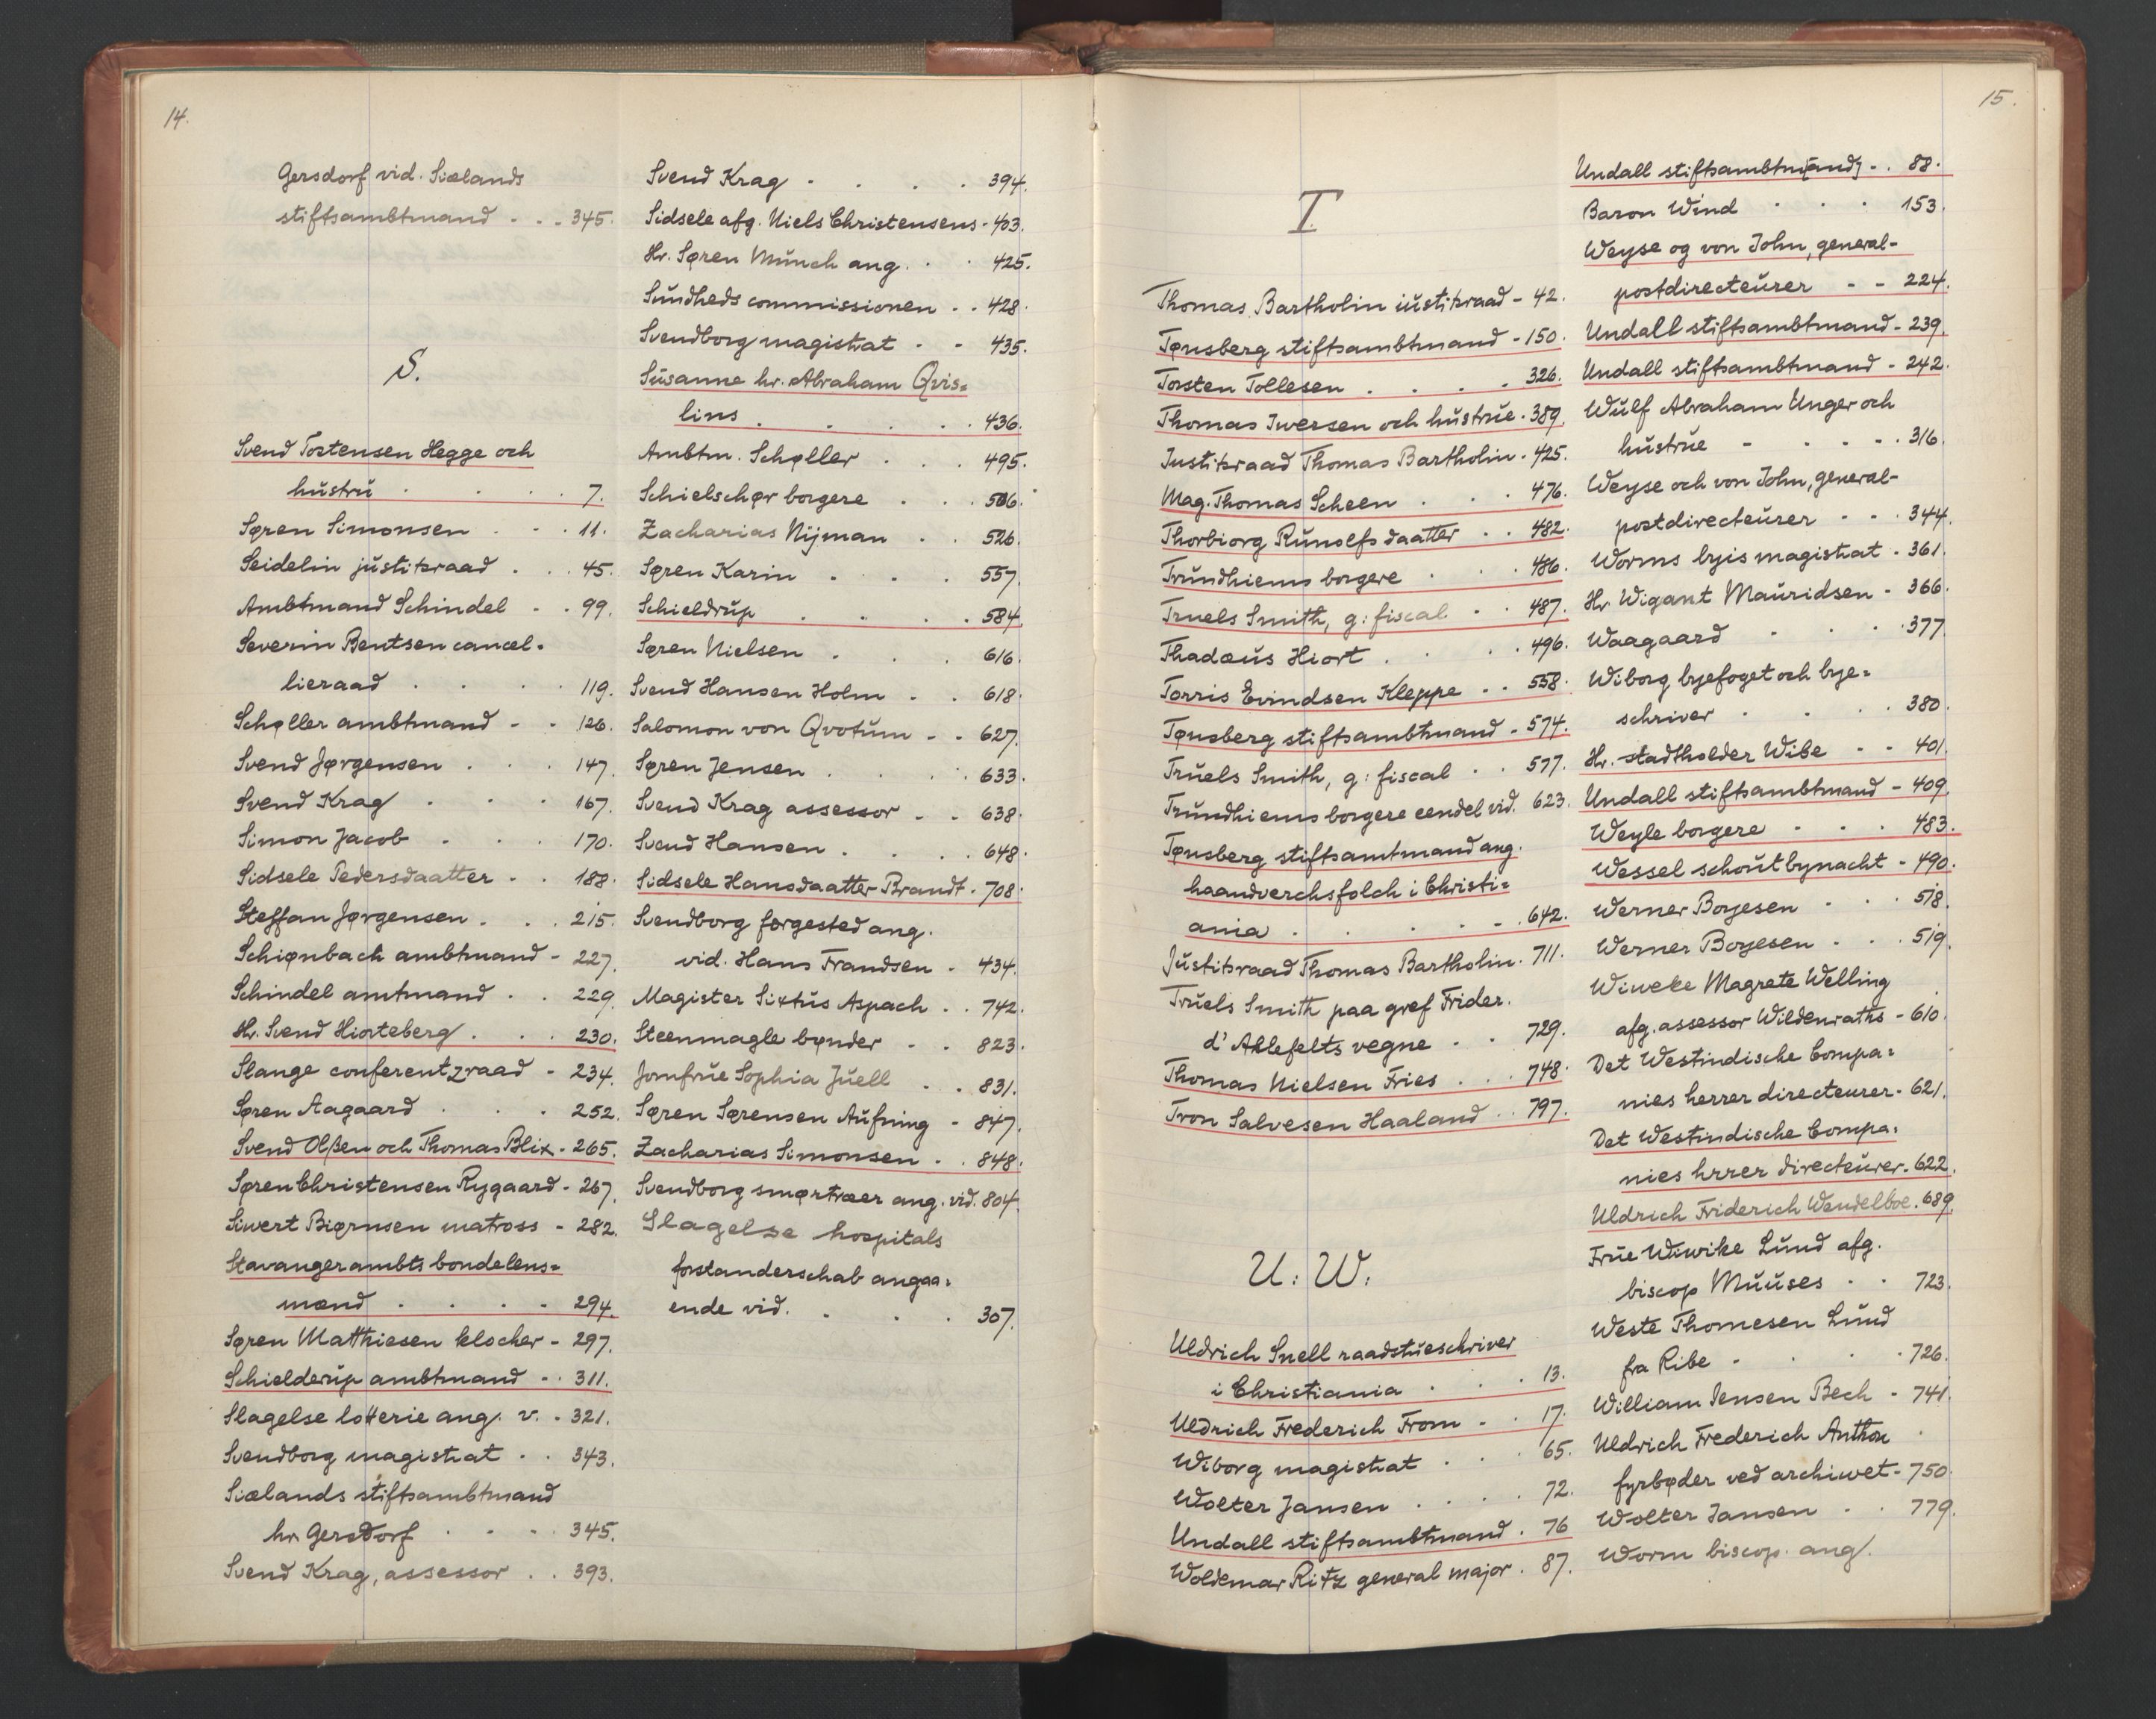 14.
Gersdorf vid. Siælands
stiftsambtmand - . - 345.
S.
Svend Tostensen Hegge och
hustru . . . . 7.
Søren Simonsen . . . 11.
Seidelin justitsraad . . . 45.
Ambtmand Schindel - . 99.
Severin Bentsen cancel=
lieraad . . . . 119.
Schøller ambtmand - - 126.
Svend Jørgensen . . . 147.
Svend Krag . . . 167.
Simon Jacob . . . 170.
Sidsele Pedersdaatter . . 188.
Steffan Jørgensen . . . 215.
Schiønbach ambtmand - 227.
Schindel amtmand . . 229.
Hr. Svend Hiorteberg . . . 230.
Slange conferentzraad - 234.
Søren Aagaard . . . 252.
Svend Olßen och Thomas Blix - 265.
Søren Christensen Rygaard - 267.
Siwert Biørnsen matross - 282.
Stavanger ambts bondelens=
mænd . . . . 294.
Søren Matthiesen klocher - 297.
Schielderup ambtmand - . 311.
Slagelse lotterie ang. v. - 321.
Svendborg magistrat . . 343.
Siælands stiftsambtmand
hr. Gersdorf . . . 345.
Svend Krag, assessor . . 393.
Svend Krag . . . . 394.
Sidsele afg. Niels Christensens - 403.
Hr. Søren Munch ang. . . 425.
Sundheds commissionen . . 428.
Svendborg magistrat - - 435.
Susanne hr. Abraham Qvis=
lins . . . . . 436.
Ambtm. Schøller . . . 495.
Schielschør borgere . . . 506.
Zacharias Nijman . . 526.
Søren Karin . . . . 557.
Schieldrup . . . . 584.
Søren Nielsen . . . 616.
Svend Hansen Holm - . 618.
Salomon von Qvotum - - 627.
Søren Jensen . . . . 633.
Svend Krag assessor - - 638.
Svend Hansen . . . . 648.
Sidsele Hansdaatter Brandt - 708.
Svendborg færgested ang.
vid. Hans Frandsen - 434.
Magister Sixtus Aspach . . 742.
Steenmagle bønder - . 823.
Jomfrue Sophia Juell . . 831.
Søren Sørensen Aufning - 847.
Zacharias Simonsen - . 848.
Svendborg smørtræer ang. vid. 804.
Slagelse hospitals
forstanderschab angaa=
ende vid. . . . 307.
15.
T.
Thomas Bartholin iustitsraad - 42.
Tønsberg stiftsambtmand - 150.
Torsten Tollesen . . . . 326.
Thomas Iversen och hustrue . 389.
Justitsraad Thomas Bartholin . 425.
Mag. Thomas Scheen . . . 476.
Thorbiorg Runolfs daatter . . 482.
Trundhiems borgere . . . 486.
Truels Smith, g: fiscal - . 487.
Thadæus Hiort . . . . 496.
Torris Evindsen Kleppe . . 558.
Tønsberg stiftsambtmand - 574.
Truels Smith, g: fiscal . . 577.
Trundhiems borgere eendel vid. 623.
Tønsberg stiftsamtmand ang.
haandverchsfolch i Christi=
ania . . . . - . 642.
Justitsraad Thomas Bartholin . 711.
Truels Smith paa gref Frider.
d'Ahlefelts vegne . . 729.
Thomas Nielsen Fries . . . 748.
Tron Salvesen Haaland . . 797.
U: W:
Uldrich Snell raadstueschriver
i Christiania . . . 13.
Uldrich Frederich From - . 17.
Wiborg magistrat . . . 65.
Wolter Jansen . . . . 72.
Undall stiftsambtmand . 76
Woldemar Ritz general major . 87.
Undall stiftsambtm[and] - . 88.
Baron Wind . . . 153.
Weyse og von John, general-
postdirecteurer - - 224.
Undall stiftsambtmand - 239.
Undall stiftsambtmand - 242.
Wulf Abraham Unger och
hustrue - . . - . 316.
Weyse och von John, general-
postdirecteurer - - . 344.
Worms byis magistrat - 361.
Hr. Wigant Mauridsen - 366.
Waagaard . . . . 377.
Wiborg byefoget och bye=
schriver . . . . 380.
Hr. stadtholder Wibe - - 401.
Undall stiftsambtmand - 409.
Weyle borgere . . . 483.
Wessel schout bynacht - 490.
Werner Boyesen . . . 518.
Werner Boyesen . . . 519.
Wiweke Magrete Welling
afg. assessor Wildenraths - 610.
Det Westindische Compa=
nies herrer directeurer - 621.
Det Westindische Compa=
nies hrrer directeurer - 622.
Uldrich Friderich Wendelboe . 689.
Frue Wiwike Lund afg.
biscop Muuses . . 723.
Weste Thomesen Lund
fra Ribe - . . . 726.
William Jensen Bech - 741.
Uldrich Frederich Anthon
fyrbøder ved archiwet - 750.
Wolter Jansen . . 779.
Worm biscop. ang.